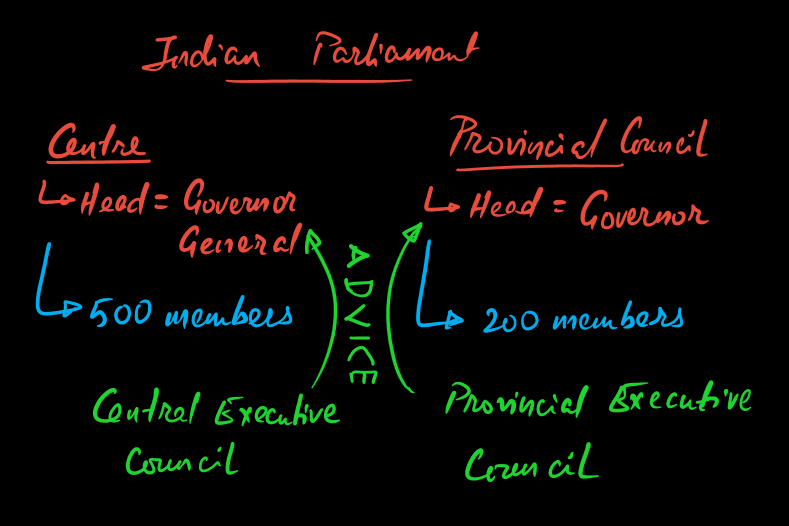 Indian Parliament
Centre
Head = Governor
General
500 members
Central Executive
Council
ADVICE
Provincial Council
Head = Governor
200 members
Provincial Executive
Council